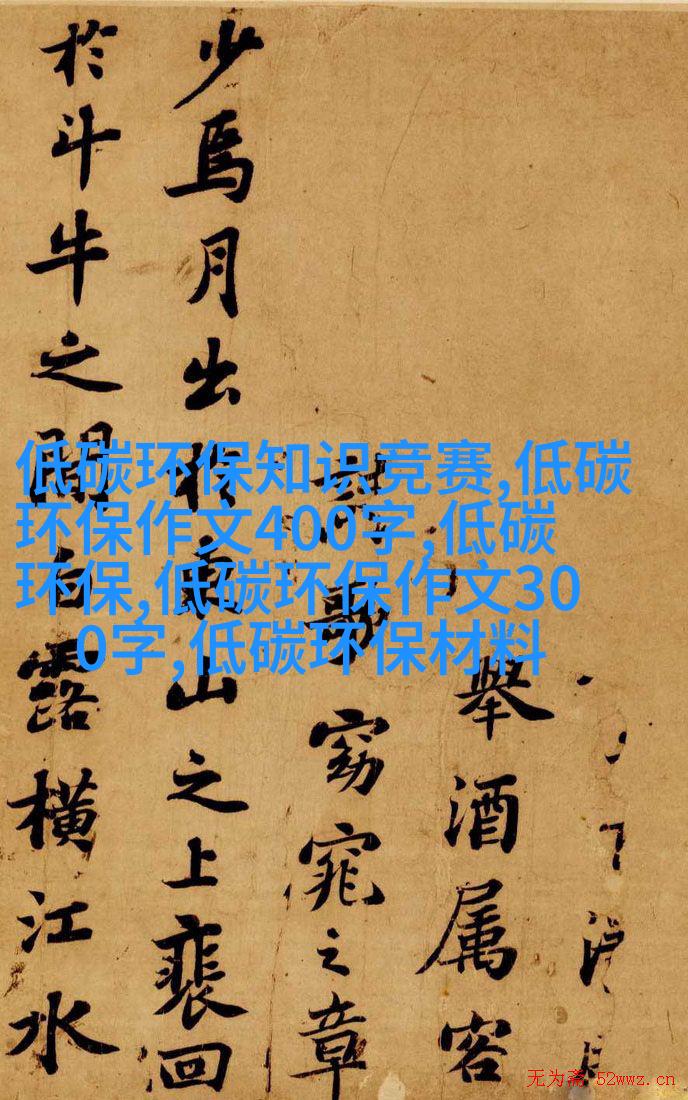 舉酒属客
歌窈窕之章
少焉月出於東山之上裴回
於斗牛之間白露橫江水
低碳环保知识竞赛,低碳
环保作文400字,低碳
环保,低碳环保作文30
0字,低碳环保材料
无为斋 52wwz.cn